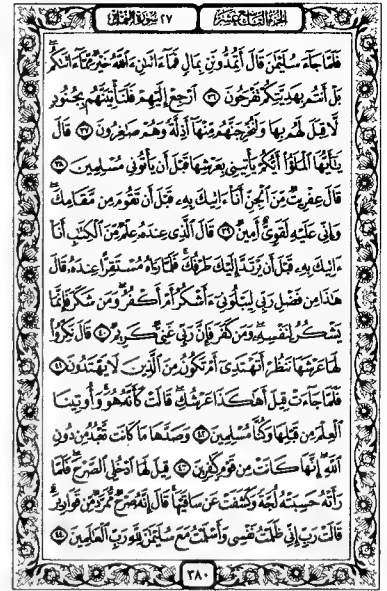 الجزء التاسع عشر ٢٧ سورة النمل
فَلَمَّا جَآءَ سُلَيْمَٰنَ قَالَ أَتُمِدُّونَنِ بِمَالٍ فَمَآ ءَاتَىٰنِۦَ ٱللَّهُ خَيْرٌ مِّمَّآ ءَاتَىٰكُم
بَلْ أَنتُم بِهَدِيَّتِكُمْ تَفْرَحُونَ ٣٦ ٱرْجِعْ إِلَيْهِمْ فَلَنَأْتِيَنَّهُم بِجُنُودٍ
لَّا قِبَلَ لَهُم بِهَا وَلَنُخْرِجَنَّهُم مِّنْهَآ أَذِلَّةً وَهُمْ صَٰغِرُونَ ٣٧ قَالَ
يَٰٓأَيُّهَا ٱلْمَلَؤُا۟ أَيُّكُمْ يَأْتِينِى بِعَرْشِهَا قَبْلَ أَن يَأْتُونِى مُسْلِمِينَ ٣٨
قَالَ عِفْرِيتٌ مِّنَ ٱلْجِنِّ أَنَا۠ ءَاتِيكَ بِهِۦ قَبْلَ أَن تَقُومَ مِن مَّقَامِكَ
وَإِنِّى عَلَيْهِ لَقَوِىٌّ أَمِينٌ ٣٩ قَالَ ٱلَّذِى عِندَهُۥ عِلْمٌ مِّنَ ٱلْكِتَٰبِ أَنَا۠
ءَاتِيكَ بِهِۦ قَبْلَ أَن يَرْتَدَّ إِلَيْكَ طَرْفُكَ فَلَمَّا رَءَاهُ مُسْتَقِرًّا عِندَهُۥ قَالَ
هَٰذَا مِن فَضْلِ رَبِّى لِيَبْلُوَنِىٓ ءَأَشْكُرُ أَمْ أَكْفُرُ وَمَن شَكَرَ فَإِنَّمَا
يَشْكُرُ لِنَفْسِهِۦ وَمَن كَفَرَ فَإِنَّ رَبِّى غَنِىٌّ كَرِيمٌ ٤٠ قَالَ نَكِّرُوا۟
لَهَا عَرْشَهَا نَنظُرْ أَتَهْتَدِىٓ أَمْ تَكُونُ مِنَ ٱلَّذِينَ لَا يَهْتَدُونَ ٤١
فَلَمَّا جَآءَتْ قِيلَ أَهَٰكَذَا عَرْشُكِ قَالَتْ كَأَنَّهُۥ هُوَ وَأُوتِينَا
ٱلْعِلْمَ مِن قَبْلِهَا وَكُنَّا مُسْلِمِينَ ٤٢ وَصَدَّهَا مَا كَانَت تَّعْبُدُ مِن دُونِ
ٱللَّهِ إِنَّهَا كَانَتْ مِن قَوْمٍ كَٰفِرِينَ ٤٣ قِيلَ لَهَا ٱدْخُلِى ٱلصَّرْحَ فَلَمَّا
رَأَتْهُ حَسِبَتْهُ لُجَّةً وَكَشَفَتْ عَن سَاقَيْهَا قَالَ إِنَّهُۥ صَرْحٌ مُّمَرَّدٌ مِّن قَوَارِيرَ
قَالَتْ رَبِّ إِنِّى ظَلَمْتُ نَفْسِى وَأَسْلَمْتُ مَعَ سُلَيْمَٰنَ لِلَّهِ رَبِّ ٱلْعَٰلَمِينَ ٤٤
٣٨٠